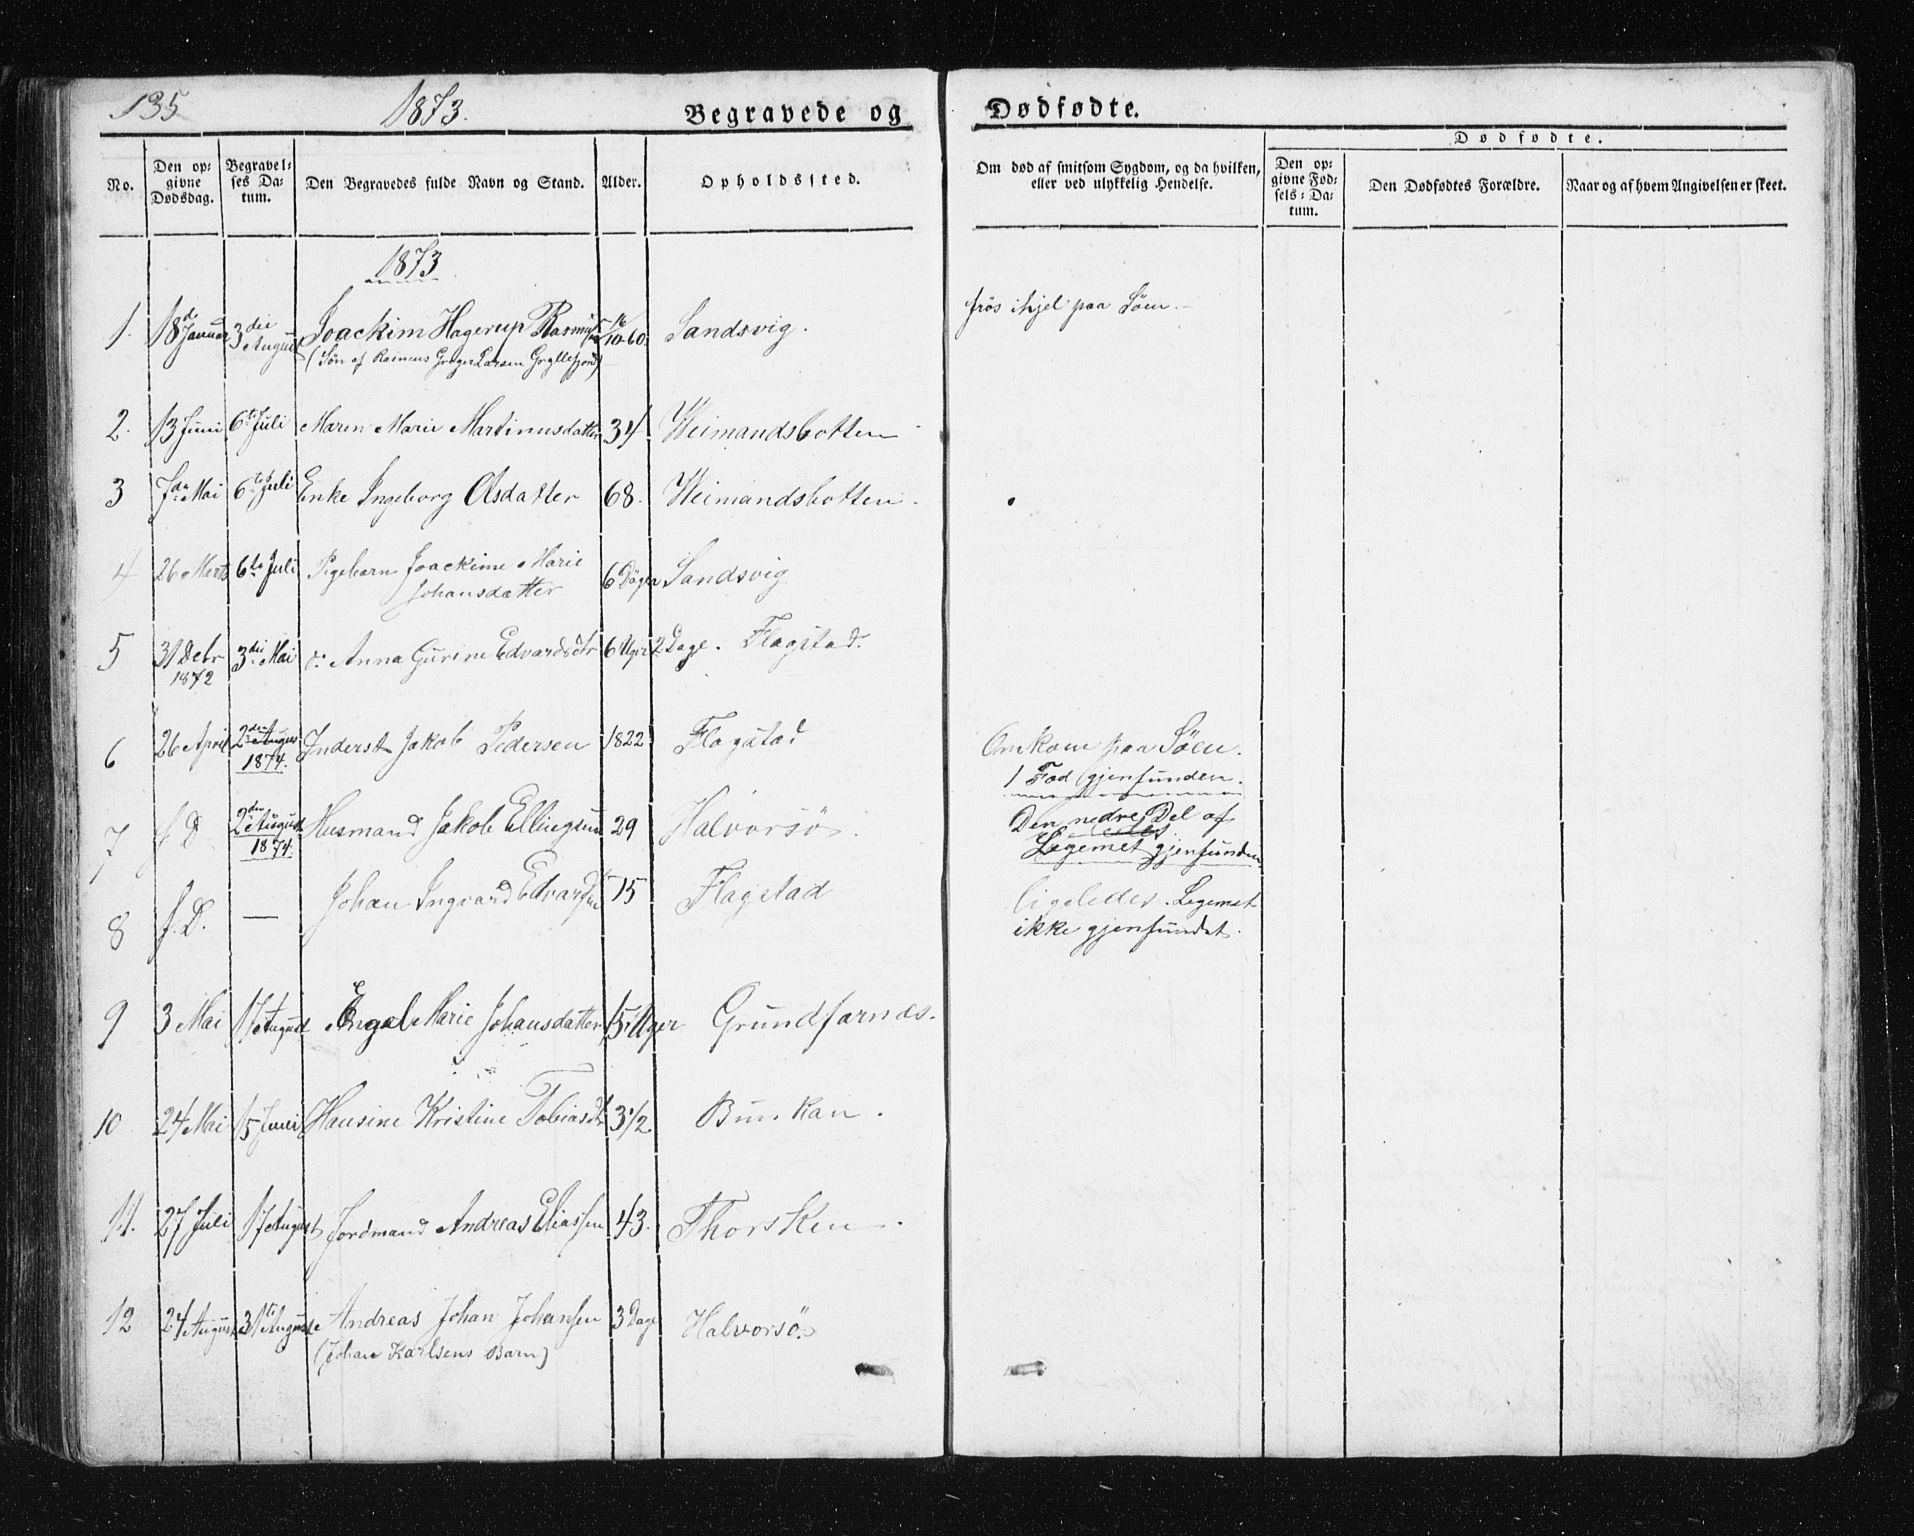 135
1873.
Begravede og Dødfødte.
No.
Den op-
givne
Dødsdag.
Begravel-
ses Da-
tum.
Den Begravedes fulde Navn og Stand.
Alder.
Opholdssted.
Om død af smitsom Sygdom, og da hvilken,
eller ved ulykkelig Hendelse.
Dødfødte.
Den op-
givne Fød-
sels-Da-
tum.
Den Dødfødtes Forældre.
Naar og af hvem Angivelsen er skeet.
1873
1. 18d Januar 3die August Joackim Hagerup 16/10 60. Sandsvig. frös ihjel paa Söen.
(Sön af Rasmus Greger Larsen Gryllefjord)
2. 13 Juni 6te Juli Maren Marie Martinusdatter 34 Weimandsbotten
3 7de Mai 6te Juli Enke Ingeborg Olsdatter 68. Weimandsbotten.
4 26 Marts 6te Juli Pigebarn Joackime Marie 6 Dögn Sandsvig
Johansdatter
5 31 Decbr 3die Mai Anna Gurine Edvardsdtr 6 Uger 2 Dage. Flagstad.
1872
6 26 April 2den August Inderst Jakob Pedersen 1822 Flagstad Omkom paa Söen.
1874. 1 Fod gjenfunden.
7 f. D 2den August Husmand Jakob Ellingsen 29 Halvorsö. Den nedre Del af
1874. Legemet gjenfunden
8 f. D. — Johan Ingvard Edvardsen 15 Flagstad ligeledes. Legemet
ikke gjenfundet.
9 3 Mai 17 August Engel Marie Johansdatter 15 Uger Grundfarnds.
10 24 Mai 15 Juni Hansine Kristine Tobiasdt 3 1/2 Bunkan.
11. 27 Juli 17 August Jordmand Andreas Eliassen 43. Thorsken.
12 24 August 31te August Andreas Johan Johansen 3 Dage Halvorsö
(Johan Karlsens Barn)